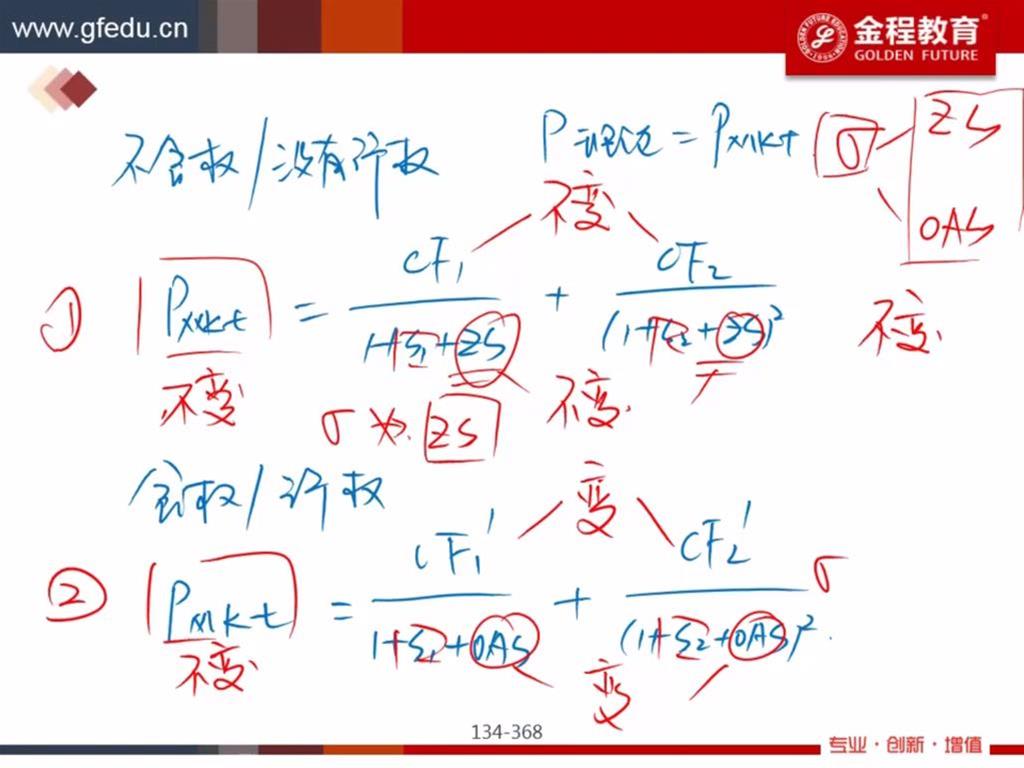 www.gfedu.cn
金程教育®
GOLDEN FUTURE
不含权/没有行权
P理论 = Pmkt σ ZS
OAS
不变
① Pmkt = CF₁ / (1+S₁+ZS) + CF₂ / (1+S₂+ZS)²
不变 不变 不变
σ ZS
含权/行权
变
② Pmkt = CF₁' / (1+S₁+OAS) + CF₂' / (1+S₂+OAS)² σ
不变 变
134-368
专业·创新·增值